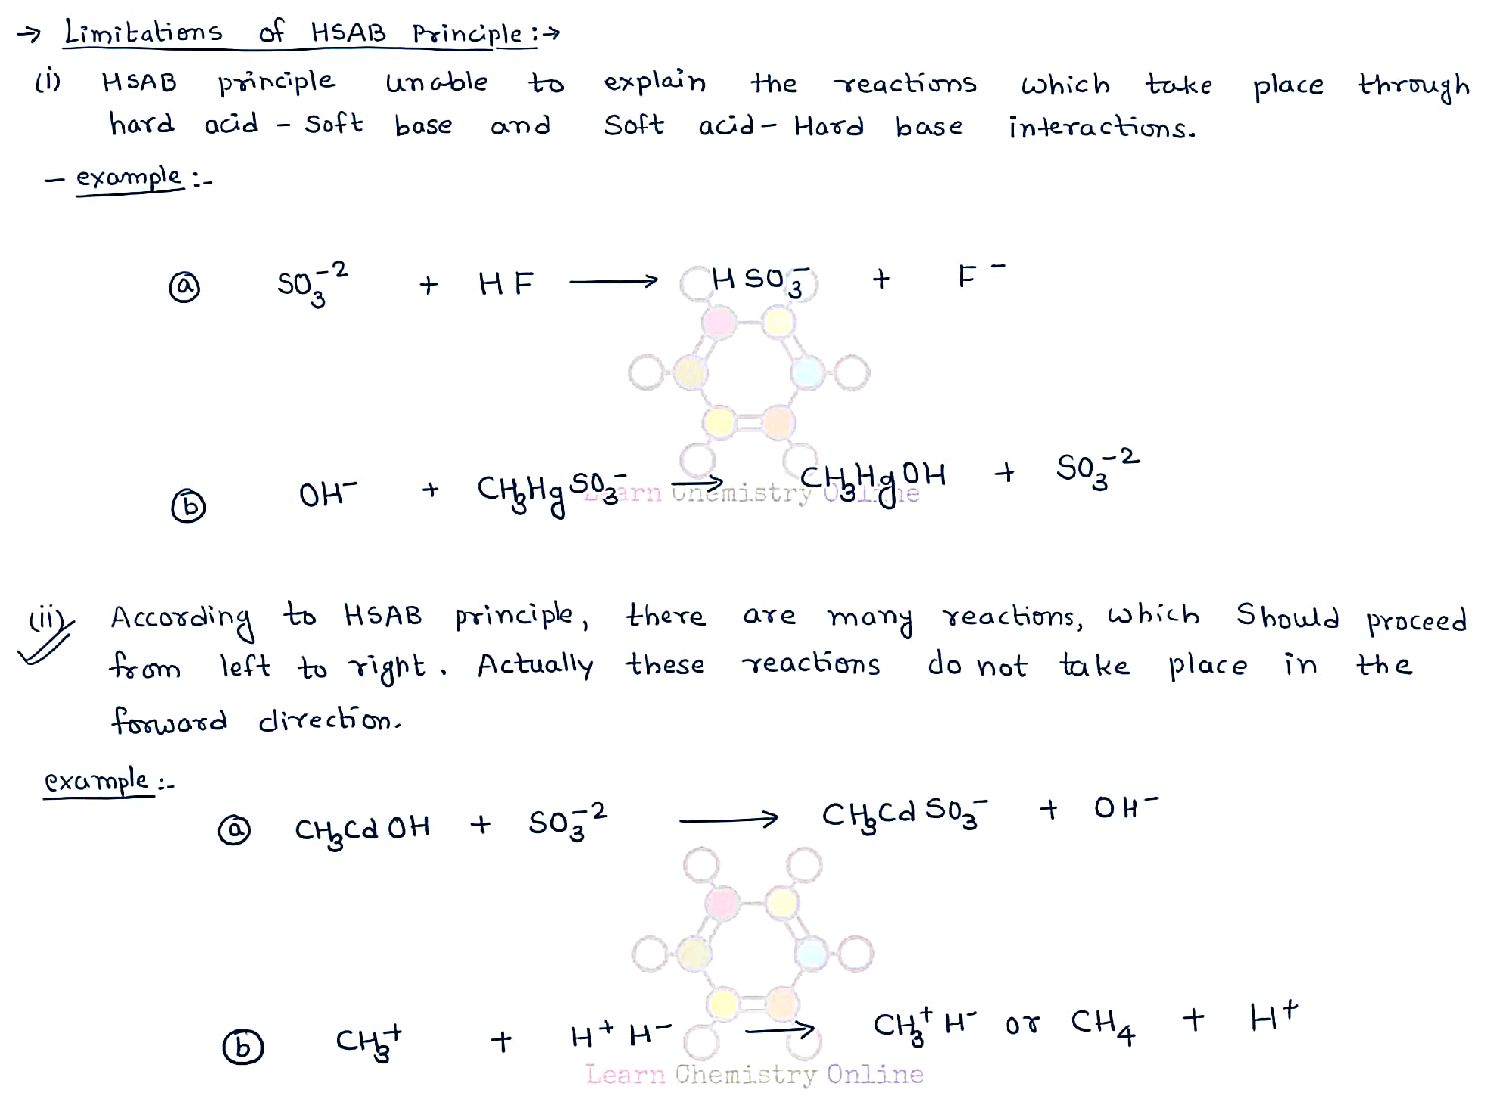 → Limitations of HSAB Principle :→
(i) HSAB principle unable to explain the reactions which take place through
hard acid - soft base and soft acid - Hard base interactions.
- example :-
ⓐ SO₃⁻² + HF ⟶ HSO₃⁻ + F⁻
ⓑ OH⁻ + CH₃HgSO₃⁻ ⟶ CH₃HgOH + SO₃⁻²
Learn Chemistry Online
(ii) According to HSAB principle, there are many reactions, which should proceed
from left to right. Actually these reactions do not take place in the
forward direction.
example :-
ⓐ CH₃CdOH + SO₃⁻² ⟶ CH₃CdSO₃⁻ + OH⁻
ⓑ CH₃⁺ + H⁺H⁻ ⟶ CH₃⁺H⁻ or CH₄ + H⁺
Learn Chemistry Online